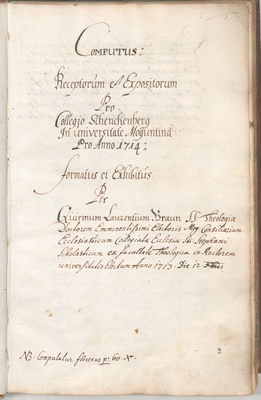 Computus:
Receptorum et Expositorum
Pro
Collegio Schenckenberg
In universitate Moguntina
Pro Anno 1714:
formatus et Exhibitus
Per
Laurentium Braun SS Theologiæ
Doctorem Eminentissimi Electoris Mog Consiliarium
Ecclesiasticum Collegiatæ Ecclesiæ Sti Stephani
Scholasticum ex facultate Theologica in Rectorem
universitatis Electum Anno 1713
NB Computatur florenus p: 60 Xr.
2